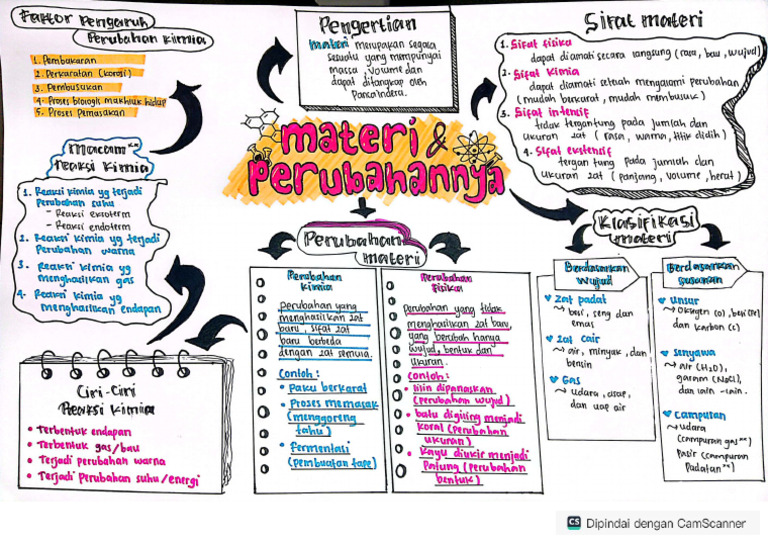 Faktor Pengaruh
Perubahan Kimia
1. Pembakaran
2. Perkaratan (korosi)
3. Pembusukan
4. Proses biologik makhluk hidup
5. Proses Pemasakan
Pengertian
Materi merupakan segala
sesuatu yang mempunyai
massa, volume dan
dapat ditangkap oleh
Pancaindera.
Sifat materi
1. Sifat fisika
dapat diamati secara langsung (rasa, bau, wujud)
2. Sifat kimia
dapat diamati setelah mengalami perubahan
(mudah berkarat, mudah membusuk)
3. Sifat intensif
tidak tergantung pada jumlah dan
ukuran zat (rasa, warna, titik didih)
4. Sifat ekstensif
tergantung pada jumlah dan
ukuran zat (panjang, volume, berat)
materi &
Perubahannya
Macam"
reaksi kimia
1. Reaksi kimia yg terjadi
Perubahan suhu
- Reaksi eksoterm
- Reaksi endoterm
2. Reaksi kimia yg terjadi
Perubahan warna
3. Reaksi kimia yg
menghasilkan gas
4. Reaksi kimia yg
menghasilkan endapan
Ciri-Ciri
Reaksi Kimia
• Terbentuk endapan
• Terbentuk gas/bau
• Terjadi perubahan warna
• Terjadi perubahan suhu/energi
Perubahan
materi
Perubahan
kimia
perubahan yang
menghasilkan zat
baru, sifat zat
baru berbeda
dengan zat semula.
Contoh:
• Paku berkarat
• Proses memasak
(menggoreng
tahu)
• Fermentasi
(pembuatan tape)
Perubahan
fisika
Perubahan yang tidak
menghasilkan zat baru,
yang berubah hanya
wujud, bentuk dan
ukuran.
Contoh:
• lilin dipanaskan
(perubahan wujud)
• batu digiling menjadi
koral (perubahan
ukuran)
• Kayu diukir menjadi
Patung (perubahan
bentuk)
Klasifikasi
materi
Berdasarkan
wujud
Zat padat
→ besi, seng dan
emas
Zat cair
→ air, minyak, dan
bensin
Gas
→ udara, asap,
dan uap air
Berdasarkan
susunan
Unsur
→ Oksigen (O), besi (Fe)
dan karbon (C)
Senyawa
→ air (H₂O),
garam (NaCl),
dan lain-lain.
Campuran
→ udara
(campuran gas")
Pasir (campuran
Padatan")
CS Dipindai dengan CamScanner